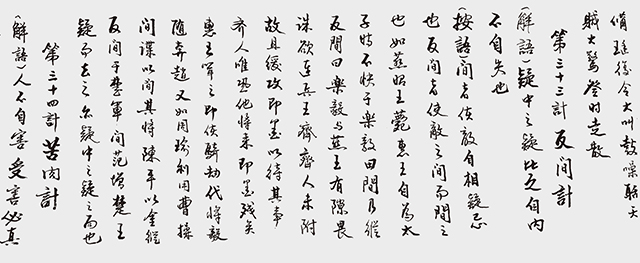 備珽復令大叫鼓噪聒天
賊大驚登時走散
第三十三計 反間計
（解語）疑中之疑比之自内
不自失也
（按語）間者使敵自相疑忌
也反間者使敵之間而間之
也如燕昭王薨惠王自為太
子時不快于樂毅田間乃縱
反間曰樂毅与燕王有隙畏
誅欲連兵王齊齊人未附
故且緩攻即墨以待其事
齐人唯恐他將来即墨殘矣
惠王聞之即使騎劫代將毅
隨奔趙又如周瑜利用曹操
間諜以間其將陳平以金縱
反間于楚軍間范增楚王
疑而去之亦疑中之疑之局也
第三十四計 苦肉計
（解語）人不自害受害必真